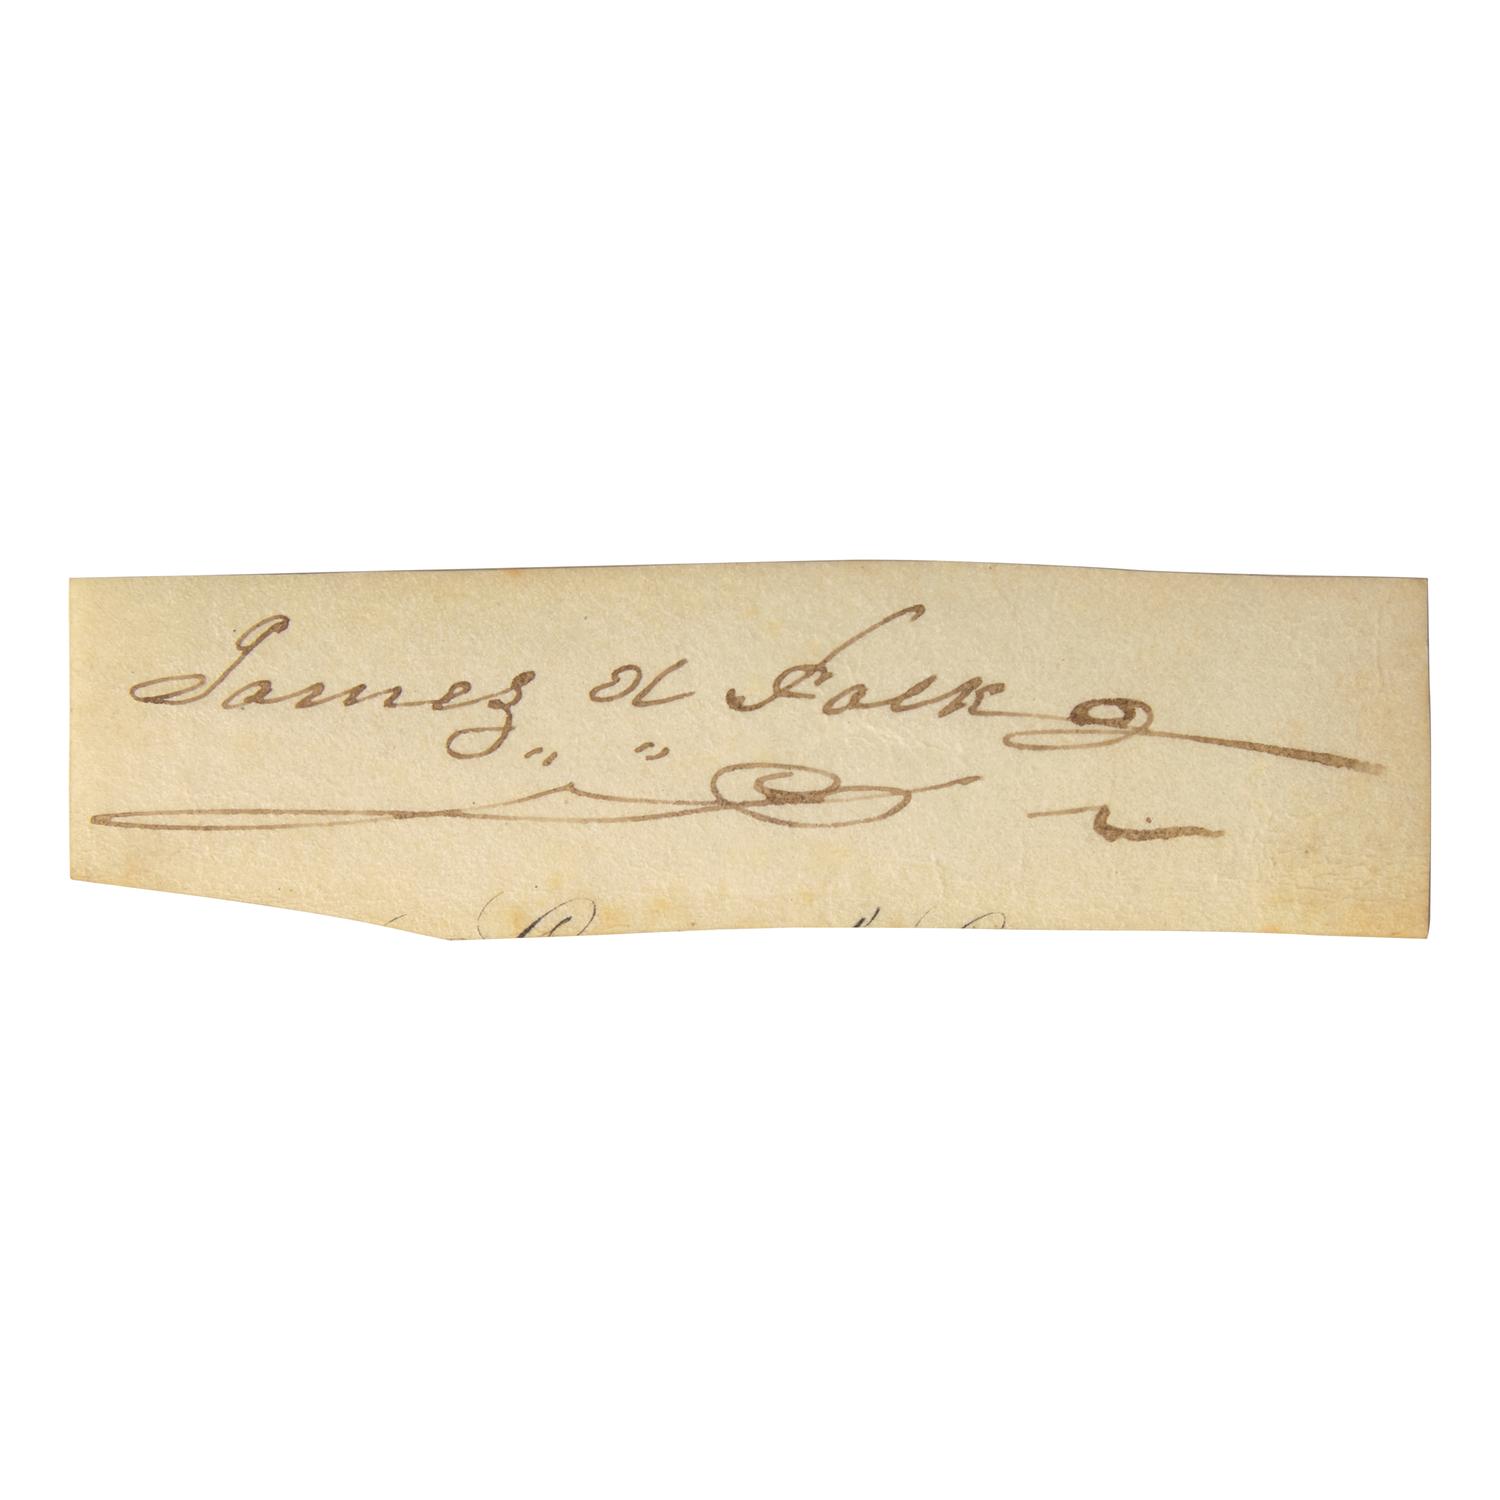 James d Folk